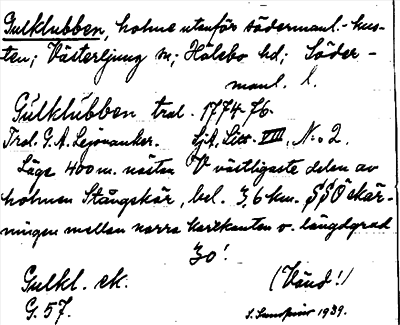 Gulklubben, holme utanför södermanl.-kus-
ten; Västerljung sn; Hölebo hd; Söder-
manl. l.
Gulklubben trol. 1774-76.
Trol. G. A. Lejonanker. Sjk, Litt. VIII, No 2.
Läge 400 m. nästan V västligaste delen av
holmen Stångskär, bel. 3,6 km. SSO skär-
ningen mellan norra kartkanten o. längdgrad
30'.
Gulkl. ek. (Vänd!)
G. 57. 1939.